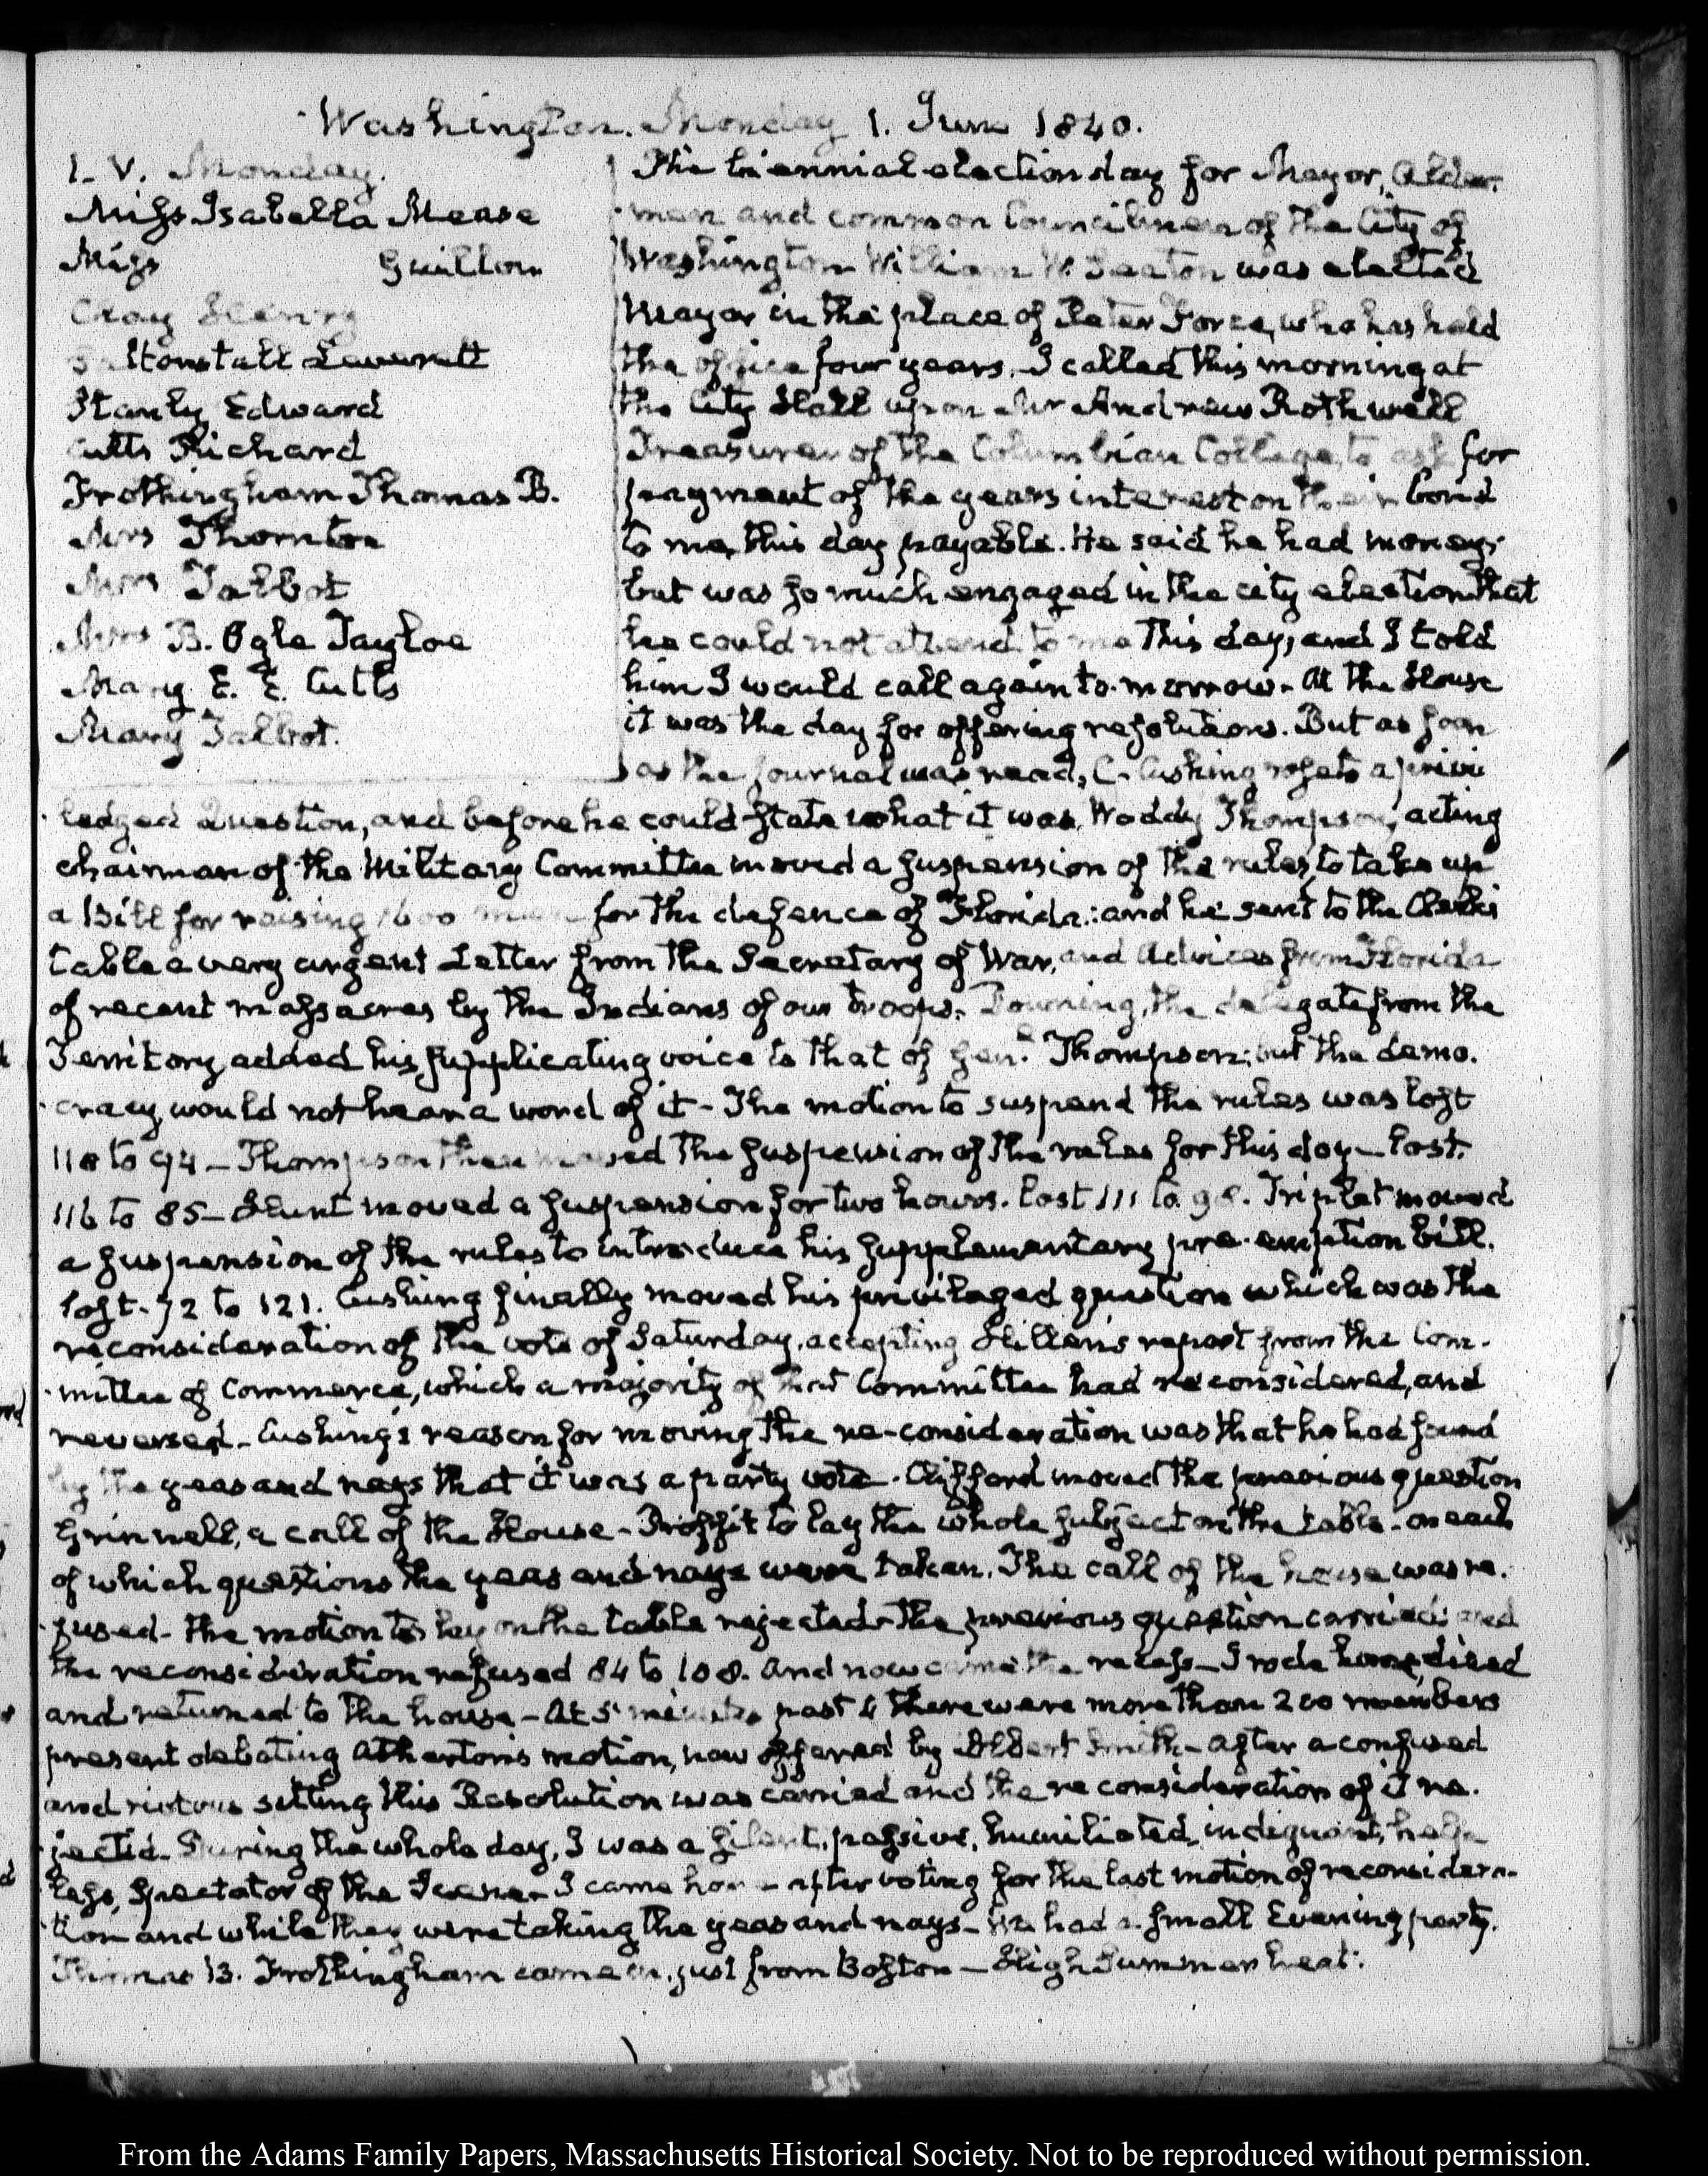 Washington. Monday 1. June 1840.
1. V. Monday.
Miss Isabella Mease
Miss Guillou
Clay Henry
Saltonstall Leverett
Stanly Edward
Cutts Richard
Frothingham Thomas B.
Mrs Thornton
Mrs Talbot
Mrs B. Ogle Tayloe
Mary E. E. Cutts
Mary Talbot.
The biennial election day for Mayor, Alder-
men and common Councilmen of the City of
Washington William W. Seaton was elected
Mayor in the place of Peter Force, who has held
the office four years. I called this morning at
the City Hall upon Mr Andrew Rothwell
Treasurer of the Columbian College, to ask for
payment of the years interest on their bond
to me, this day payable. He said he had money;
but was so much engaged in the city election that
he could not attend to me this day, and I told
him I would call again to-morrow. At the House
it was the day for offering resolutions. But as soon
as the Journal was read, C. Cushing rose to a privi-
ledged Question, and before he could state what it was, Waddy Thompson, acting
chairman of the Military Committee moved a suspension of the rules, to take up
a Bill for raising 1600 men for the defence of Florida: and he sent to the Clerk's
table a very urgent Letter from the Secretary of War, and Advices from Florida
of recent massacres by the Indians of our troops. Downing, the delegate from the
Territory, added his supplicating voice to that of Genl. Thompson; but the demo-
cracy, would not hear a word of it - The motion to suspend the rules was lost
110 to 94 - Thompson then moved the suspension of the rules for this day - lost.
116 to 85 - Hunt moved a suspension for two hours. lost 111 to 98. Triplet moved
a suspension of the rules to introduce his supplementary pre-emption bill.
lost. 72 to 121. Cushing finally moved his privileged question which was the
reconsideration of the vote of Saturday, accepting Hillen's report from the Com-
mittee of Commerce, which a majority of that Committee had reconsidered, and
reversed. Cushing's reason for moving the re-consideration was that he had found
by the yeas and nays that it was a party vote. Clifford moved the previous question
Grinnell, a call of the House - Proffit to lay the whole subject on the table - on each
of which questions the yeas and nays were taken. The call of the house was re-
fused - the motion to lay on the table rejected - the previous question carried and
the reconsideration refused 84 to 108. And now came the recess - I rode home, dined
and returned to the house - At 5 minutes past 4 there were more than 200 members
present debating Atherton's motion, now offered by Albert Smith - after a confused
and riotous sitting this Resolution was carried and the reconsideration of it re-
jected. During the whole day, I was a silent, passive, humiliated, indignant, help-
less, Spectator of the Scene - I came home after voting for the last motion of reconsidera-
tion and while they were taking the yeas and nays - We had a small Evening party.
Thomas B. Frothingham came in, just from Boston - High Summer heat.
From the Adams Family Papers, Massachusetts Historical Society. Not to be reproduced without permission.